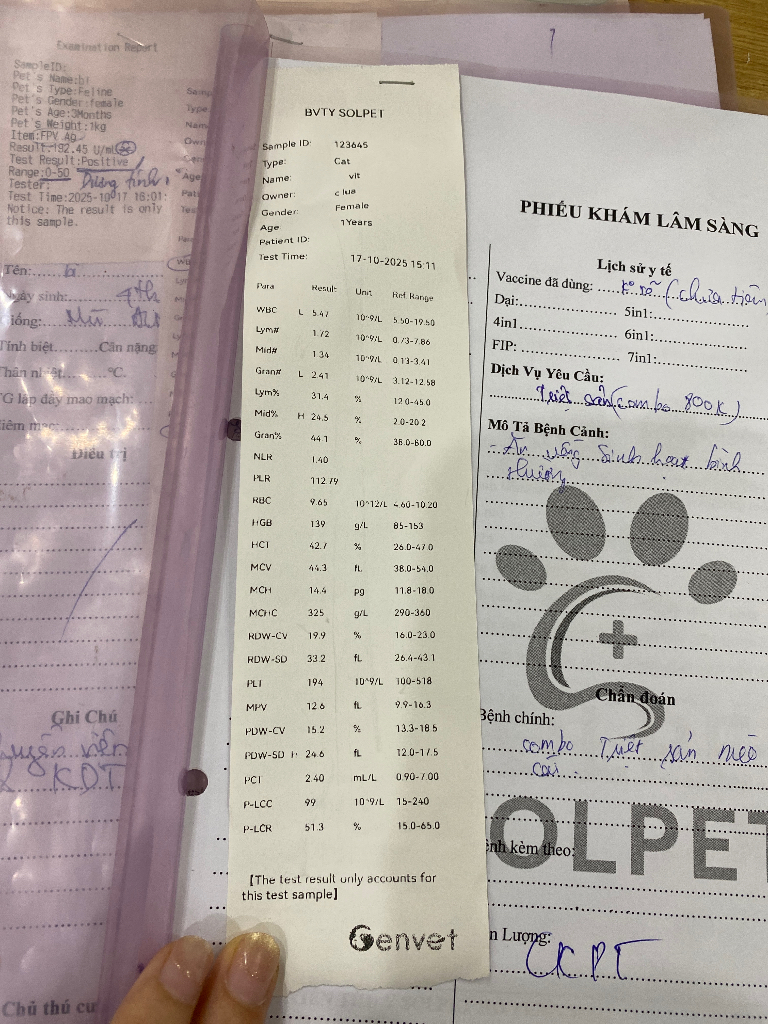 Examination Report
Sample ID:
Pet's Name:bi
Pet's Type:Feline
Pet's Gender:female
Pet's Age:3Months
Pet's Weight:1kg
Item:FPV Ag
Result:192.45 U/ml
Test Result:Positive
Range:0-50
Tester: Dương tính
Test Time:2025-10-17 16:01:
Notice: The result is only
this sample.
Tên: bi
Ngày sinh:
iống:
Tính biệt Cân nặng
Thân nhiệt °C.
G lấp đầy mao mạch:
iêm mạc
Điều trị
Ghi Chú
KDT
Chủ thú cư
BVTY SOLPET
Sample ID: 123645
Type: Cat
Name: vit
Owner: c lua
Gender: Female
Age 1Years
Patient ID:
Test Time: 17-10-2025 15:11
Para Result Unit Ref. Range
WBC L 5.47 10^9/L 5.50-19.50
Lym# 1.72 10^9/L 0.73-7.86
Mid# 1.34 10^9/L 0.13-3.41
Gran# L 2.41 10^9/L 3.12-12.58
Lym% 31.4 % 12.0-45.0
Mid% H 24.5 % 2.0-20.2
Gran% 44.1 % 38.0-80.0
NLR 1.40
PLR 112.79
RBC 9.65 10^12/L 4.60-10.20
HGB 139 g/L 85-153
HCT 42.7 % 26.0-47.0
MCV 44.3 fL 38.0-54.0
MCH 14.4 pg 11.8-18.0
MCHC 325 g/L 290-360
RDW-CV 19.9 % 16.0-23.0
RDW-SD 33.2 fL 26.4-43.1
PLT 194 10^9/L 100-518
MPV 12.6 fL 9.9-16.3
PDW-CV 15.2 % 13.3-18.5
PDW-SD H 24.6 fL 12.0-17.5
PCT 2.40 mL/L 0.90-7.00
P-LCC 99 10^9/L 15-240
P-LCR 51.3 % 15.0-65.0
[The test result only accounts for
this test sample]
Genvet
PHIẾU KHÁM LÂM SÀNG
Lịch sử y tế
Vaccine đã dùng: k rõ (chưa tiêm
Dại: 5in1:
4in1 6in1:
FIP: 7in1:
Dịch Vụ Yêu Cầu:
Triệt sản (combo 800K)
Mô Tả Bệnh Cảnh:
- Ăn uống sinh hoạt bình
thường
Chẩn đoán
Bệnh chính:
combo Triệt sản mèo
cái
OLPET
nh kèm theo:
n Lượng:
CKPT